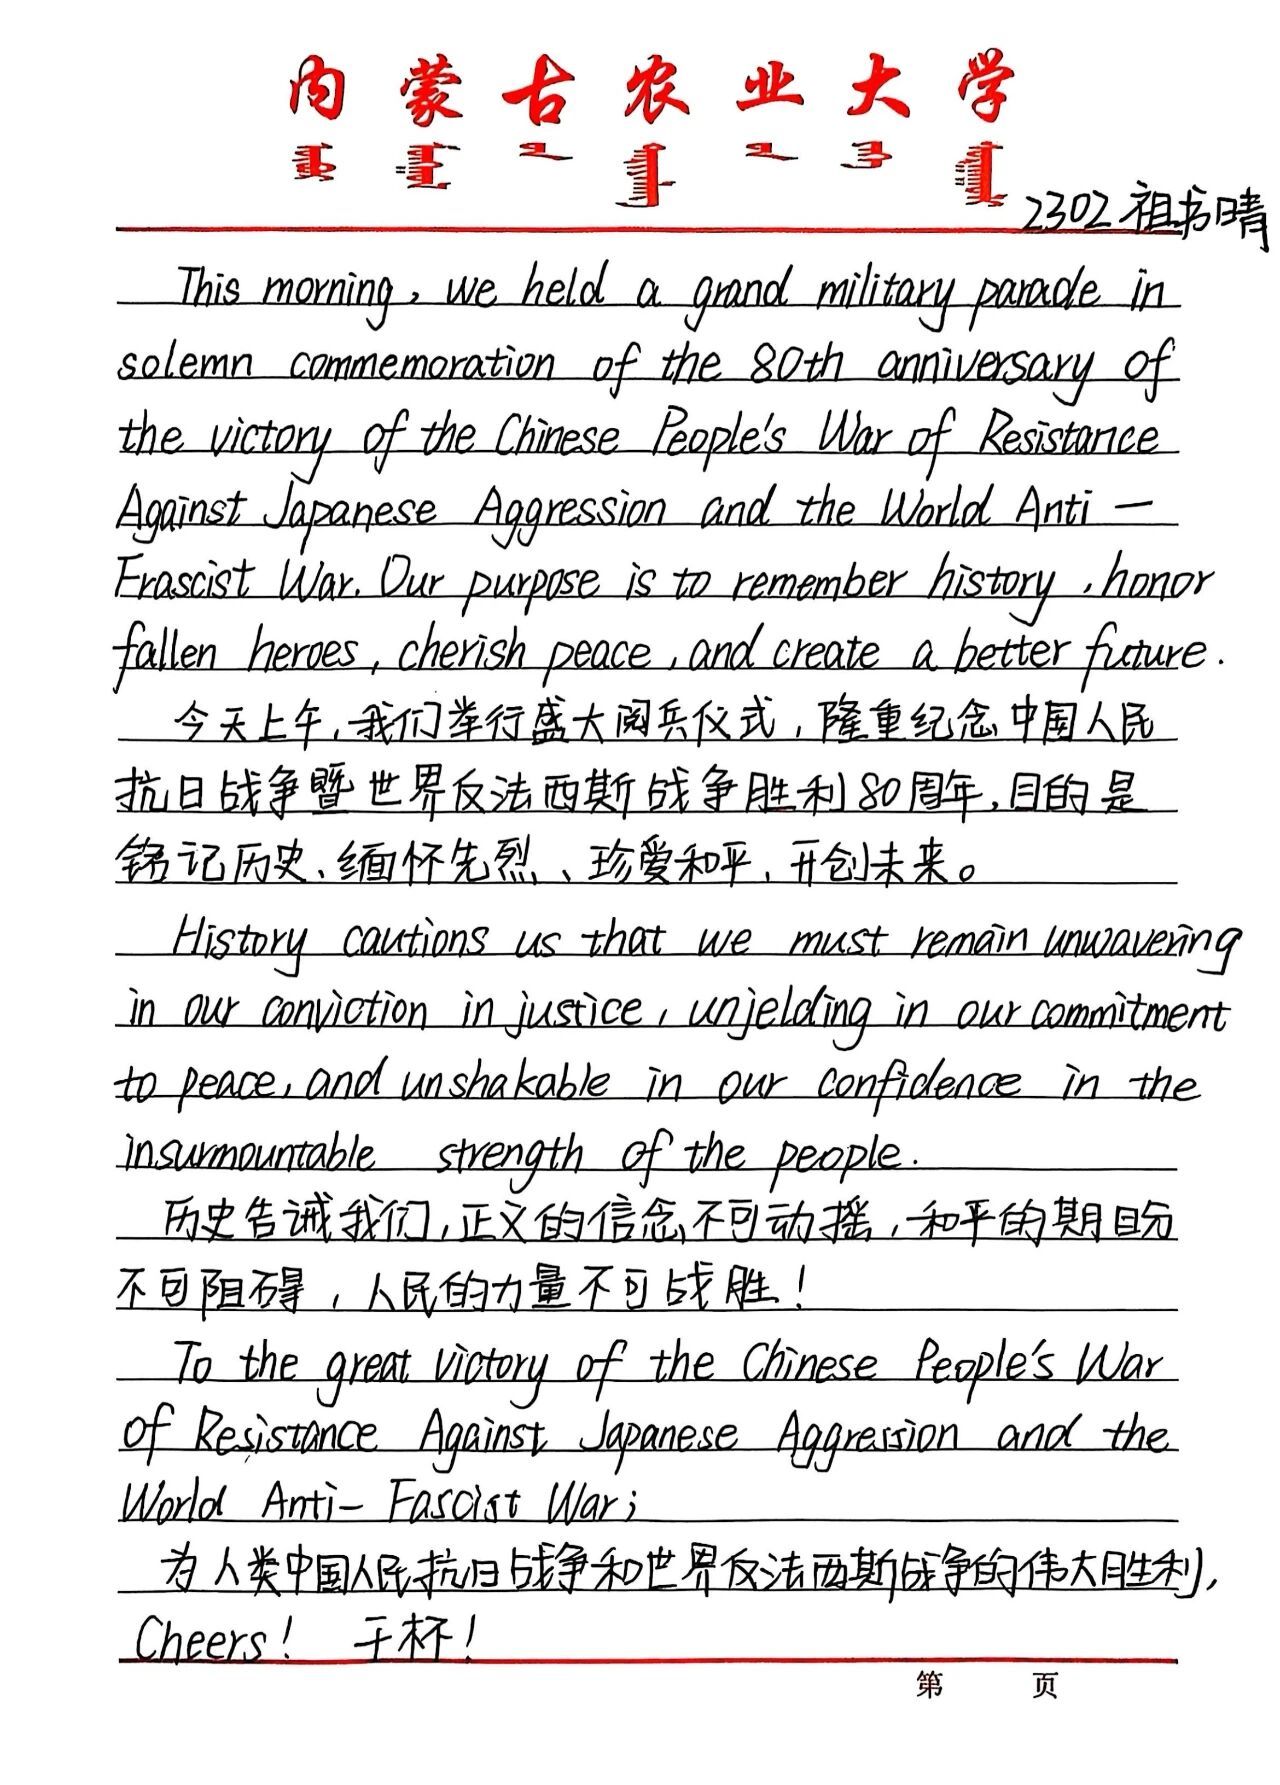 内蒙古农业大学
2302 祖书晴
This morning, we held a grand military parade in
solemn commemoration of the 80th anniversary of
the victory of the Chinese People's War of Resistance
Against Japanese Aggression and the World Anti —
Frascist War. Our purpose is to remember history, honor
fallen heroes, cherish peace, and create a better future.
今天上午,我们举行盛大阅兵仪式,隆重纪念中国人民
抗日战争暨世界反法西斯战争胜利80周年,目的是
铭记历史、缅怀先烈、珍爱和平、开创未来。
History cautions us that we must remain unwavering
in our conviction in justice, unjelding in our commitment
to peace, and unshakable in our confidence in the
insurmountable strength of the people.
历史告诫我们,正义的信念不可动摇,和平的期盼
不可阻碍,人民的力量不可战胜!
To the great victory of the Chinese People's War
of Resistance Against Japanese Aggression and the
World Anti- Fascist War;
为人类中国人民抗日战争和世界反法西斯战争的伟大胜利,
Cheers! 干杯!
第 页